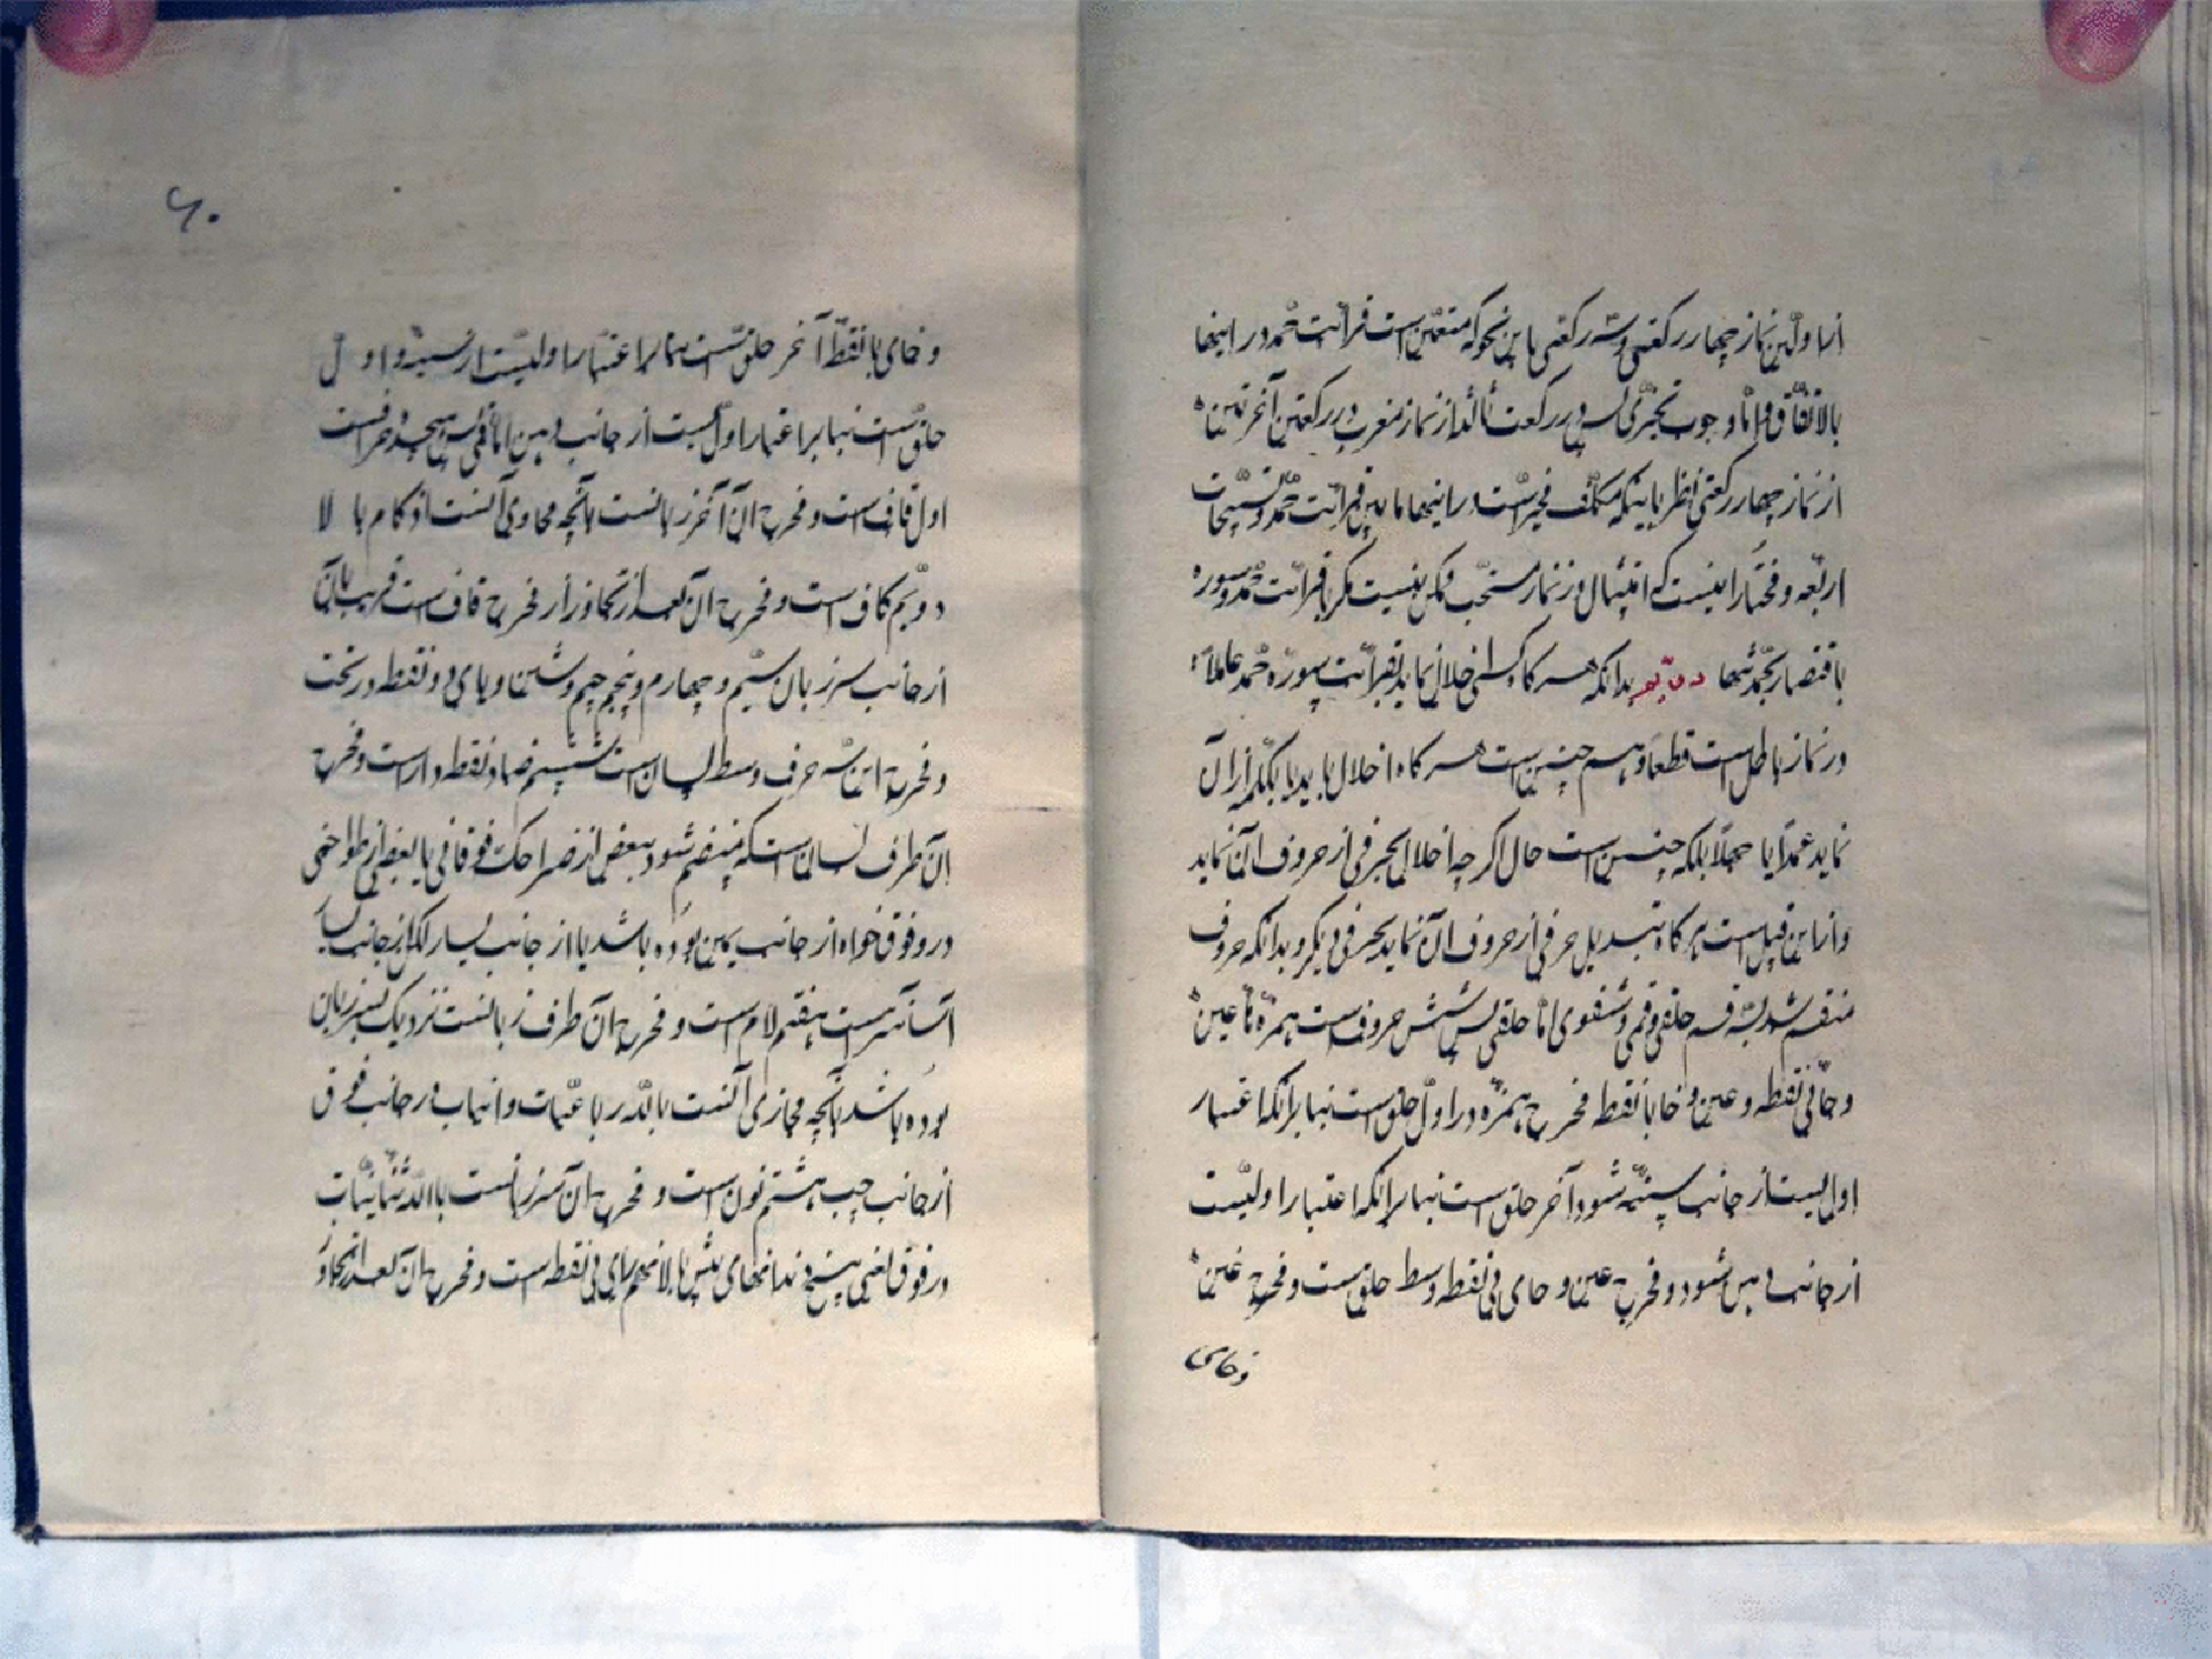 از اولین نماز چهار رکعتی و سه رکعتی باین نحو که متعین است قرائت حمد در اینها
بالاتفاق و اما وجوب تخییری پس در رکعت ثالثه از نماز مغرب و در رکعتین آخرتین
از نماز چهار رکعتی نظر باینکه مکلف مخیر است در اینها ما بین قرائت حمد و تسبیحات
اربعه و مختار اینست که امتثال در نماز مستحب ممکن نیست مگر با قرائت حمد و سوره
باقتصار بحمد تنها بدانکه هر کاه کسی اخلال نماید بقرائت سوره حمد عاملا
در نماز باطل است قطعا و هم چنین است هر کاه اخلال بکلمه از آن
نماید عمدا یا جهلا بلکه چنین است حال اکر چه اخلال بحرفی از حروف آن نماید
و از این قبیل است هر کاه تبدیل حرفی از حروف آن نماید بحرفی دیگر و بدانکه حروف
منقسم شد بسه قسم حلقی و فمی و شفوی اما حلقی پس شش حروف است همزه ها عین
و حا بی نقطه و غین و خا با نقطه مخرج همزه در اول حلق است بنابر انکه اعتبار
اولیست از جانب سینه شود و آخر حلق است بنابر انکه اعتبار اولیت
از جانب دهن شود و مخرج عین و حای بی نقطه وسط حلق است و مخرج غین
و خای
۶۰
و خای با نقطه آخر حلق است بنابر اعتبار اولیت از سینه و اول
حلق است بنابر اعتبار اولیت از جانب دهن اما فمی پس هیجده حرف است
اول قاف است و مخرج آن آخر زبانست بآنچه محاوی آنست از کام بالا
دویم کاف است و مخرج آن بعد از تجاوز از مخرج قاف است قریب بآن
از جانب سر زبان سیم و چهارم و پنجم جیم و شین و یای دو نقطه در تحت
و مخرج این سه حرف وسط لسان است ششم ضاد نقطه دار است و مخرج
آن طرف لسان است که منضم شود ببعض از ضراحک فوقانی یا بعضی از طواحنی
در فوق خواه از جانب یمین بوده باشد یا از جانب یسار لکن از جانب یسار
آسانتر است هفتم لام است و مخرج آن طرف زبانست نزدیک بسر زبان
بوده باشد بآنچه محازی آنست با لثه رباعیات و انیاب در جانب فوق
از جانب چپ هشتم نون است و مخرج آن سر زبانست با لثه ثنایات
در فوق یعنی بیخ دندانهای پیش بالا نهم رای بی نقطه است و مخرج آن بعد از تجاوز